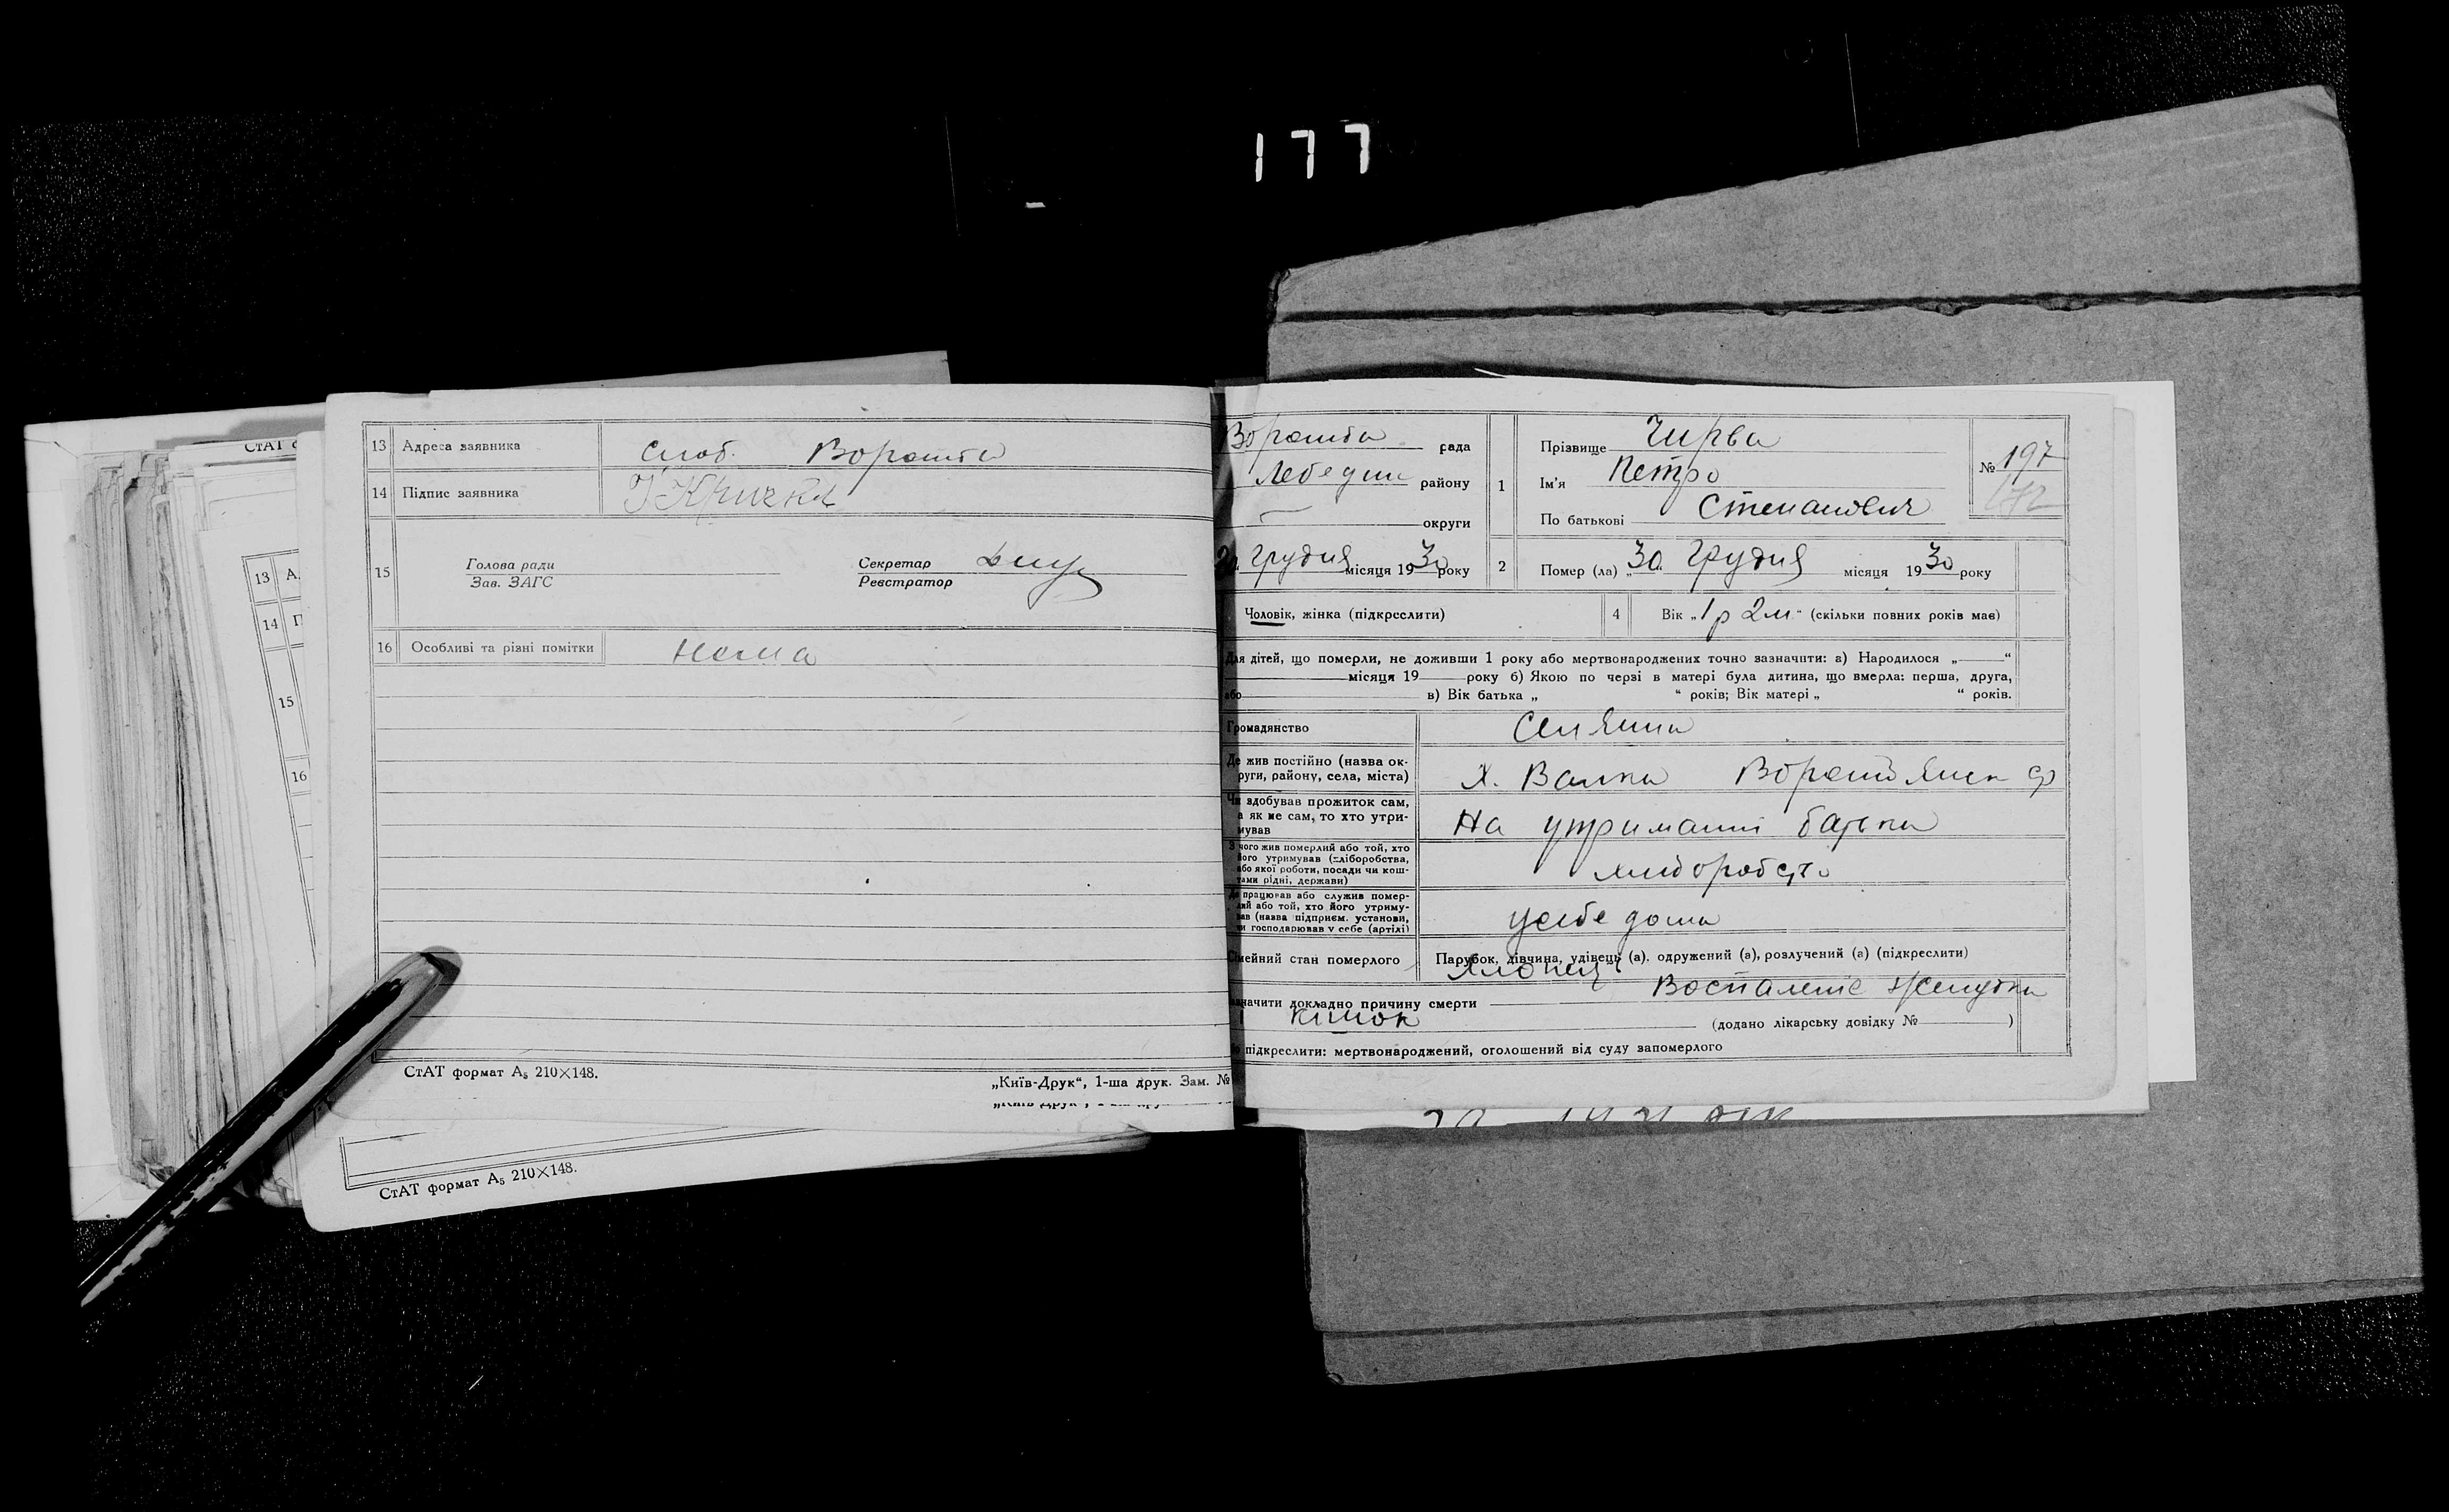 177
СтАТ
13 Адреса заявника Слоб. Ворожба
14 Підпис заявника І Кричка
15 Голова ради Секретар
Зав. ЗАГС Реєстратор
16 Особливі та різні помітки Нема
СтАТ формат А₅ 210×148.
„Київ-Друк“, 1-ша друк. Зам. №
13 А
14 П
15
16
СтАТ формат А₅ 210×148.
Ворожба рада
Лебедин району
— округи
30 Грудня місяця 1930 року
1 Прізвище Чирва
Ім'я Петро
По батькові Степанович
№ 197
172
2 Помер (ла) „30 Грудня місяця 1930 року
Чоловік, жінка (підкреслити)
4 Вік „1р 2м“ (скільки повних років має)
Для дітей, що померли, не доживши 1 року або мертвонароджених точно зазначити: а) Народилося „ “
місяця 19 року б) Якою по черзі в матері була дитина, що вмерла: перша, друга,
або в) Вік батька „ “ років; Вік матері „ “ років.
Громадянство Селянин
Де жив постійно (назва ок-
руги, району, села, міста) х. Валки Ворожбянск
Чи здобував прожиток сам,
а як не сам, то хто утри-
мував На утриманні батька
З чого жив померлий або той, хто
його утримував (хліборобства,
або якої роботи, посади чи кош-
тами рідні, держави) хліборобство
Де працював або служив помер-
лий або той, хто його утриму-
вав (назва підприєм. установи,
чи господарював у себе (артілі) усебе дома
Сімейний стан померлого Парубок, дівчина, удівець (а), одружений (а), розлучений (а) (підкреслити)
Хлопець
Зазначити докладно причину смерти Воспаленіє Желудка
і кишок (додано лікарську довідку № )
підкреслити: мертвонароджений, оголошений від суду запомерлого